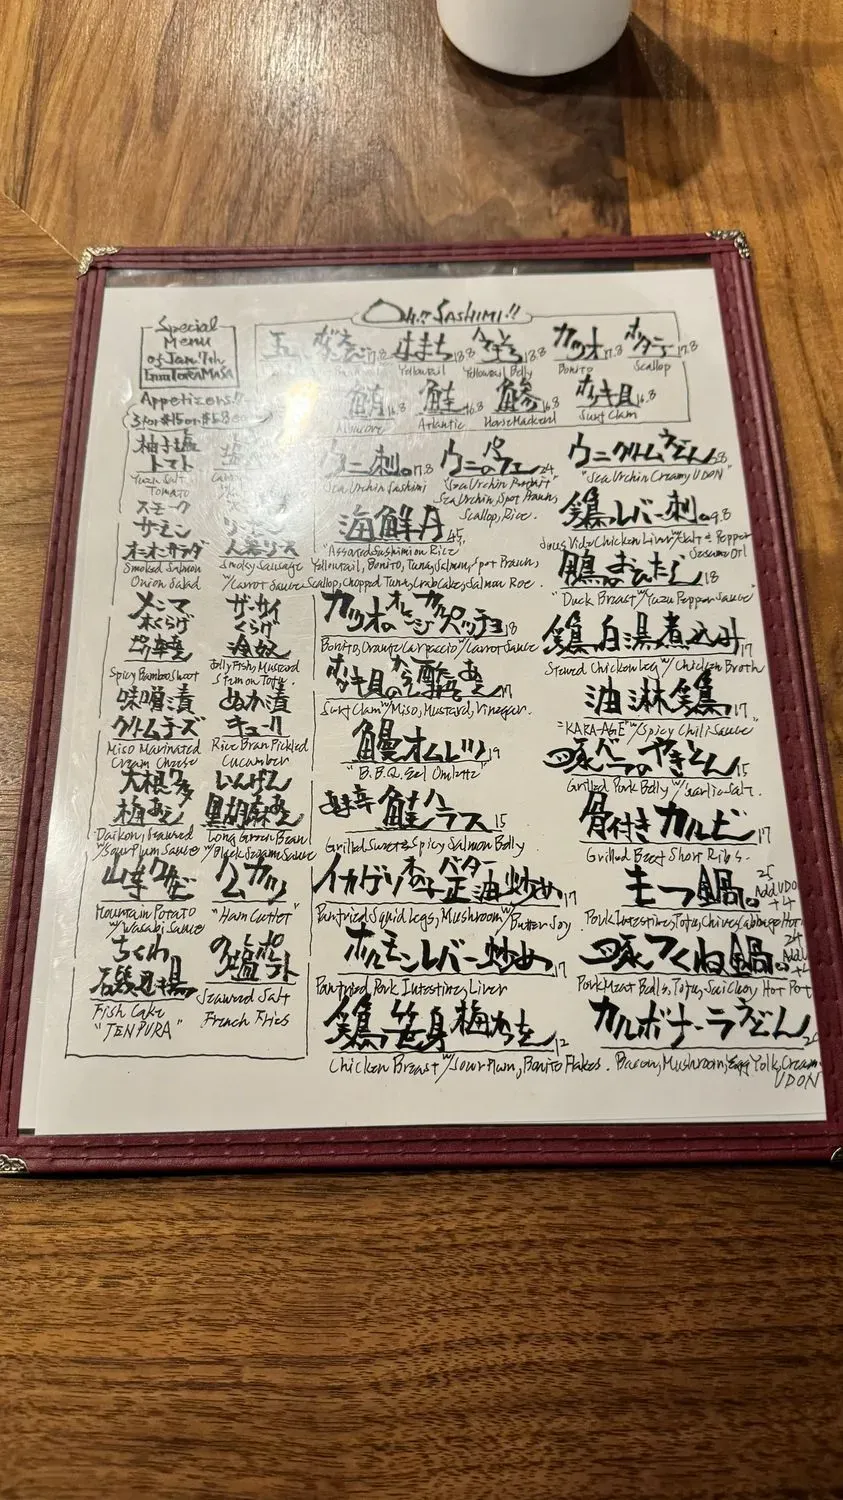 Special
Menu
of Jan 7th
Appetizers!!
3 for $15 or $5.8 ea
柚子塩
トマト
Yuzu Salt
Tomato
スモーク
サーモン
オニオンサラダ
Smoked Salmon
Onion Salad
人参ソース
Smoky Sausage
w/Carrot Sauce
メンマ
木くらげ
ピリ辛
Spicy Bamboo Shoot
ザーサイ
くらげ
冷奴
Jelly Fish, Mustard
Stem on Tofu.
味噌漬
クリームチーズ
Miso Marinated
Cream Cheese
ぬか漬
キューリ
Rice Bran Pickled
Cucumber
大根
梅あえ
Daikon, Seaweed
w/Sour Plum Sauce
いんげん
黒胡麻あえ
Long Green Bean
w/Black Sesame Sauce
山芋ワサビ
Mountain Potato
w/Wasabi Sauce
ハムカツ
"Ham Cutlet"
ちくわ
磯辺揚
Fish Cake
"TENPURA"
のり塩ポテト
Seaweed Salt
French Fries
OH!! SASHIMI!!
はまち 18.8
Yellowtail
Yellowtail Belly
カツオ 17.8
Bonito
ホタテ 17.8
Scallop
鮪 16.8
Albacore
鮭 16.8
Atlantic
鯵 16.8
Horse Mackerel
ホッキ貝 16.8
Surf Clam
ウニ刺 17.8
Sea Urchin Sashimi
ウニのパフェ 24
"Sea Urchin Parfait"
Sea Urchin, Spot Prawn,
Scallop, Rice.
海鮮丼 45
"Assorted Sashimi on Rice
Yellowtail, Bonito, Tuna, Salmon, Spot Prawn,
Scallop, Chopped Tuna, Crab Cake, Salmon Roe.
カツオのオレンジカルパッチョ 18
Bonito, Orange Carpaccio w/Carrot Sauce
ホッキ貝のから酢みそあえ 17
Surf Clam w/Miso, Mustard, Vinegar.
鰻オムレツ 19
"B.B.Q. Eel Omlette"
鮭ハラス 15
Grilled Sweet & Spicy Salmon Belly
イカゲソきの子バター醤油炒め 17
Panfried Squid Legs, Mushroom w/Butter Soy
ホルモンレバー炒め 17
Panfried Pork Intestines, Liver
鶏笹身梅おろし 12
Chicken Breast w/Sour Plum, Bonito Flakes.
ウニクリームうどん
"Sea Urchin Creamy UDON"
鶏レバー刺 9.8
Sous Vide Chicken Liver w/Salt & Pepper
Sesame Oil
鴨のおひたし 18
"Duck Breast w/Yuzu Pepper Sauce"
鶏白湯煮込み 17
Stewed Chicken Leg w/Chicken Broth
油淋鶏 17
"KARA-AGE" w/Spicy Chili Sauce
豚バラのやきとん 15
Grilled Pork Belly w/Garlic Salt.
骨付きカルビ 17
Grilled Beef Short Ribs.
もつ鍋 25
Add UDON
+4
Pork Intestines, Tofu, Chives, Cabbage Hot
豚つくね鍋 24
Add
+4
Pork Meat Balls, Tofu, Hot Pot
カルボナーラうどん
Bacon, Mushroom, Egg Yolk, Cream
UDON